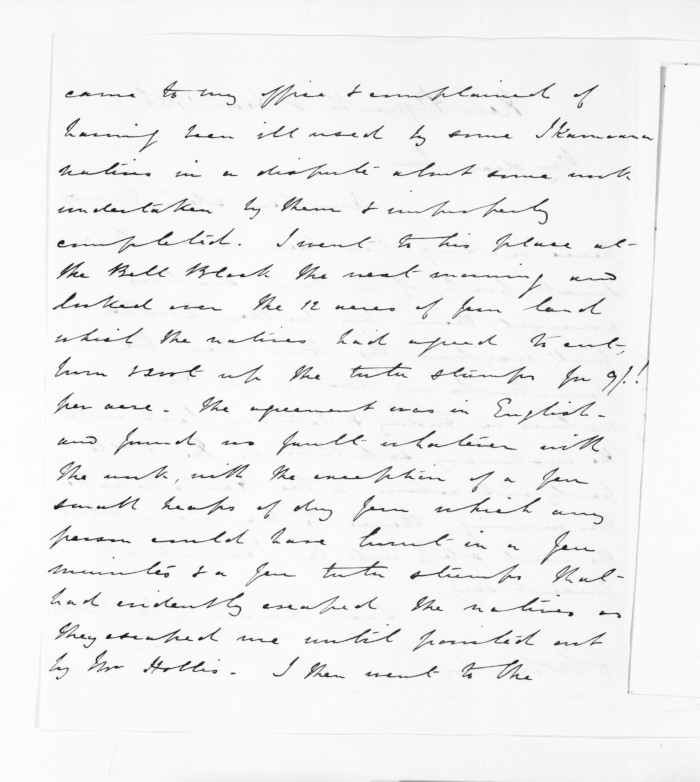 came to my office & complained of
having been ill used by some Ikamoana
natives in a dispute about some work
undertaken by them & improperly
completed. I went to his place at
the Bell Block the next morning and
looked over the 12 acres of fern land
which the natives had agreed to cut,
burn & root up the tutu stumps for 9/!!
per acre - The agreement was in English -
and found no fault whatever with
the work, with the exception of a few
small heaps of dry fern which any
person could have burnt in a few
minutes & a few tutu stumps that
had evidently escaped the natives as
they escaped me until pointed out
by Mr Hollis. I then went to the